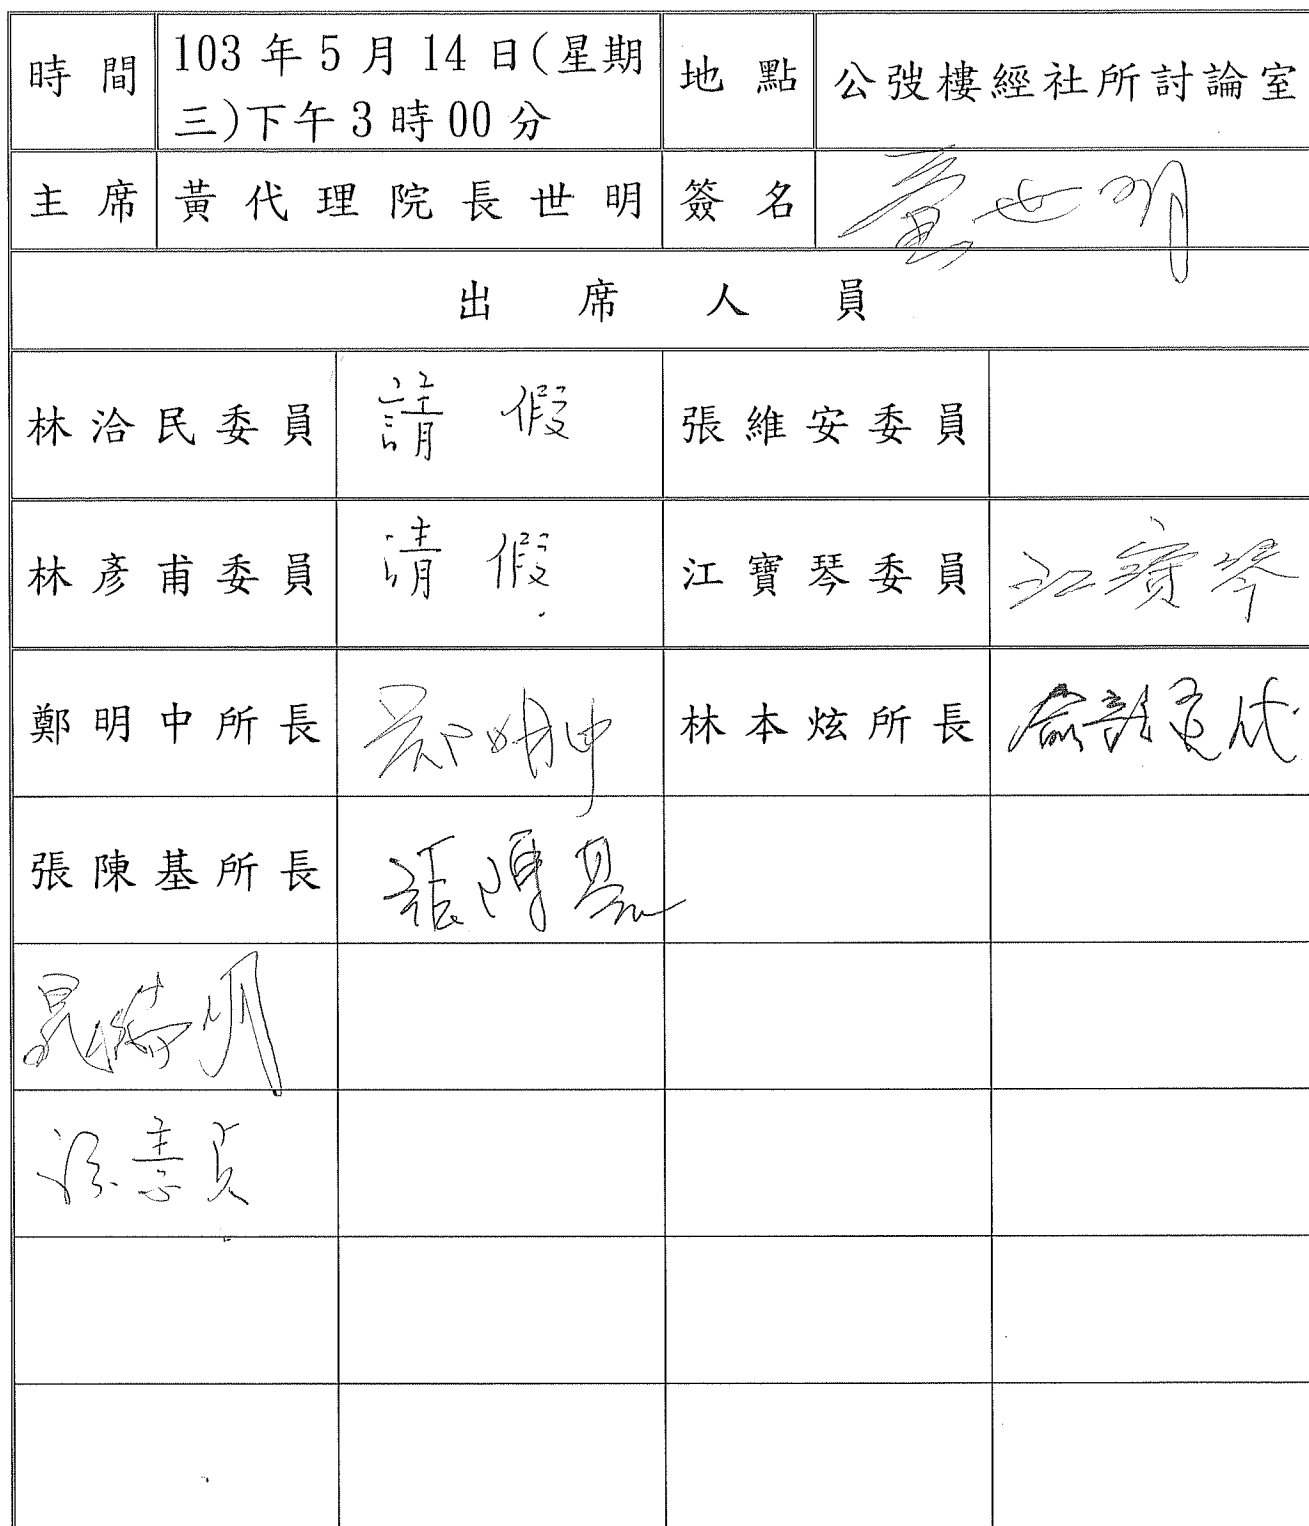 時間 103 年 5 月 14 日(星期 地點 公弢樓經社所討論室
三)下午 3 時 00 分
主席 黃代理院長世明 簽名 黃世明
出席人員
林洽民委員 請假 張維安委員
林彥甫委員 請假 江寶琴委員 江寶琴
鄭明中所長 鄭明中 林本炫所長 俞龍通代
張陳基所長 張陳基